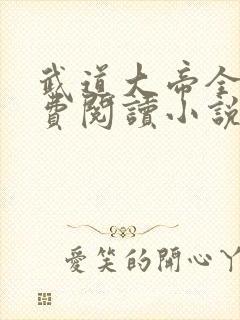 武道大帝全
費閱讀小說
愛笑的開心丫